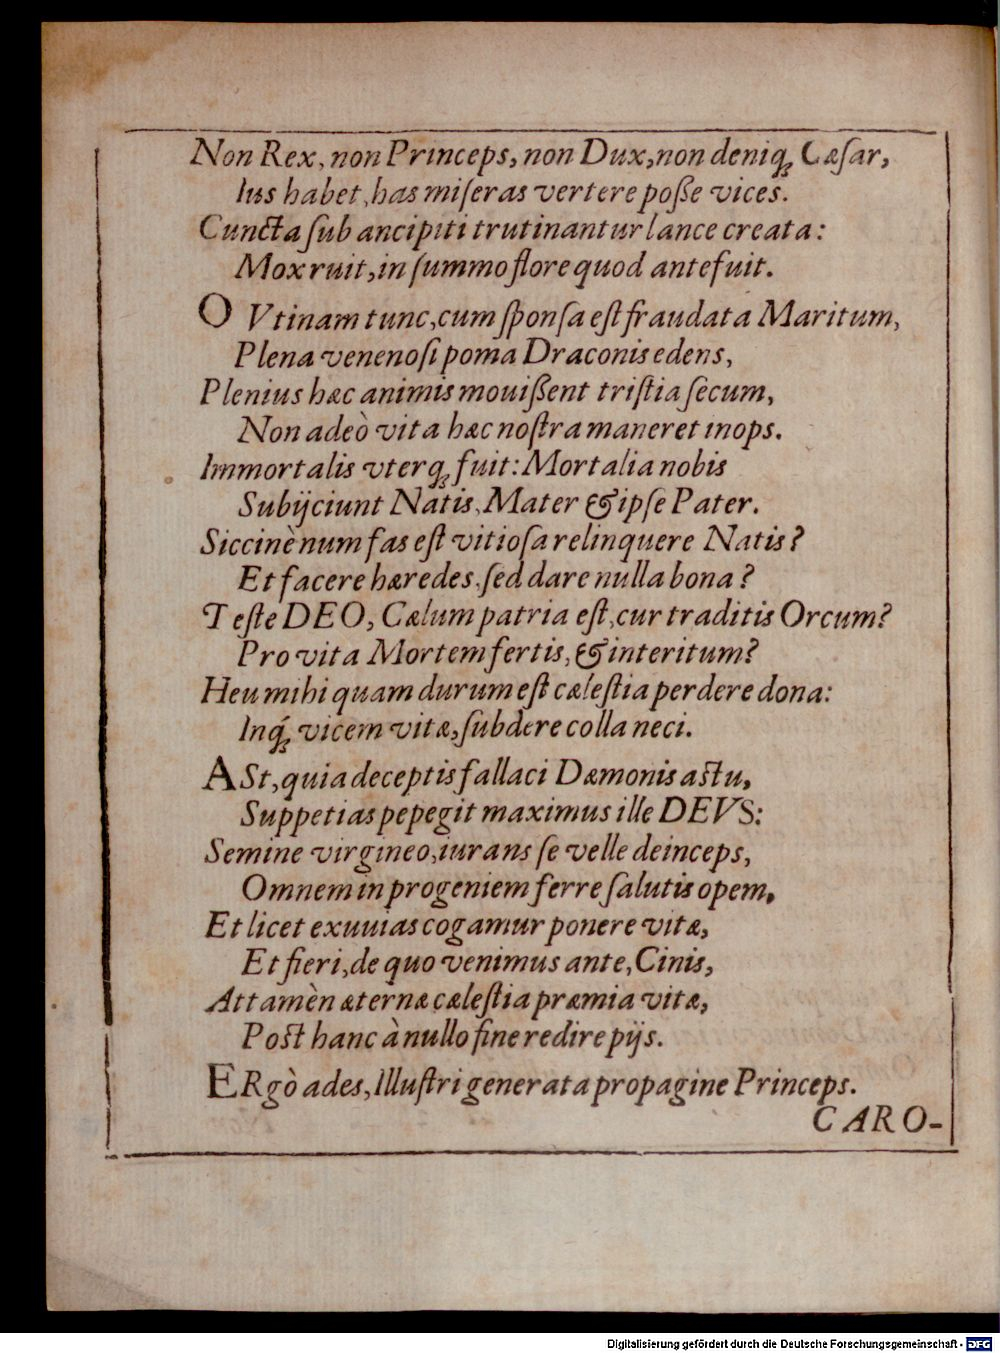 Non Rex, non Princeps, non Dux, non deniq́ꝫ Cæſar,
Ius habet, has miſeras vertere poſſe vices.
Cuncta ſub ancipiti trutinantur lance creata:
Mox ruit, in ſummo flore quod ante fuit.
O Vtinam tunc, cum ſponſa eſt fraudata Maritum,
Plena venenoſi poma Draconis edens,
Plenius hæc animis mouiſſent triſtia ſecum,
Non adeò vita hæc noſtra maneret inops.
Immortalis vterqꝫ fuit: Mortalia nobis
Subijciunt Natis, Mater & ipſe Pater.
Siccinè num fas eſt vitioſa relinquere Natis?
Et facere hæredes, ſed dare nulla bona?
Teſte DEO, Cælum patria eſt, cur traditis Orcum?
Pro vita Mortem fertis, & interitum?
Heu mihi quam durum eſt cæleſtia perdere dona:
Inq́ꝫ vicem vitæ, ſubdere colla neci.
ASt, quia deceptis fallaci Dæmonis aſtu,
Suppetias pepegit maximus ille DEVS:
Semine virgineo, iurans ſe velle deinceps,
Omnem in progeniem ferre ſalutis opem,
Et licet exuuias cogamur ponere vitæ,
Et fieri, de quo venimus ante, Cinis,
Attamèn æternæ cæleſtia præmia vitæ,
Poſt hanc à nullo fine redire pijs.
ERgò ades, Illuſtri generata propagine Princeps.
CARO-
Digitalisierung gefördert durch die Deutsche Forschungsgemeinschaft - DFG